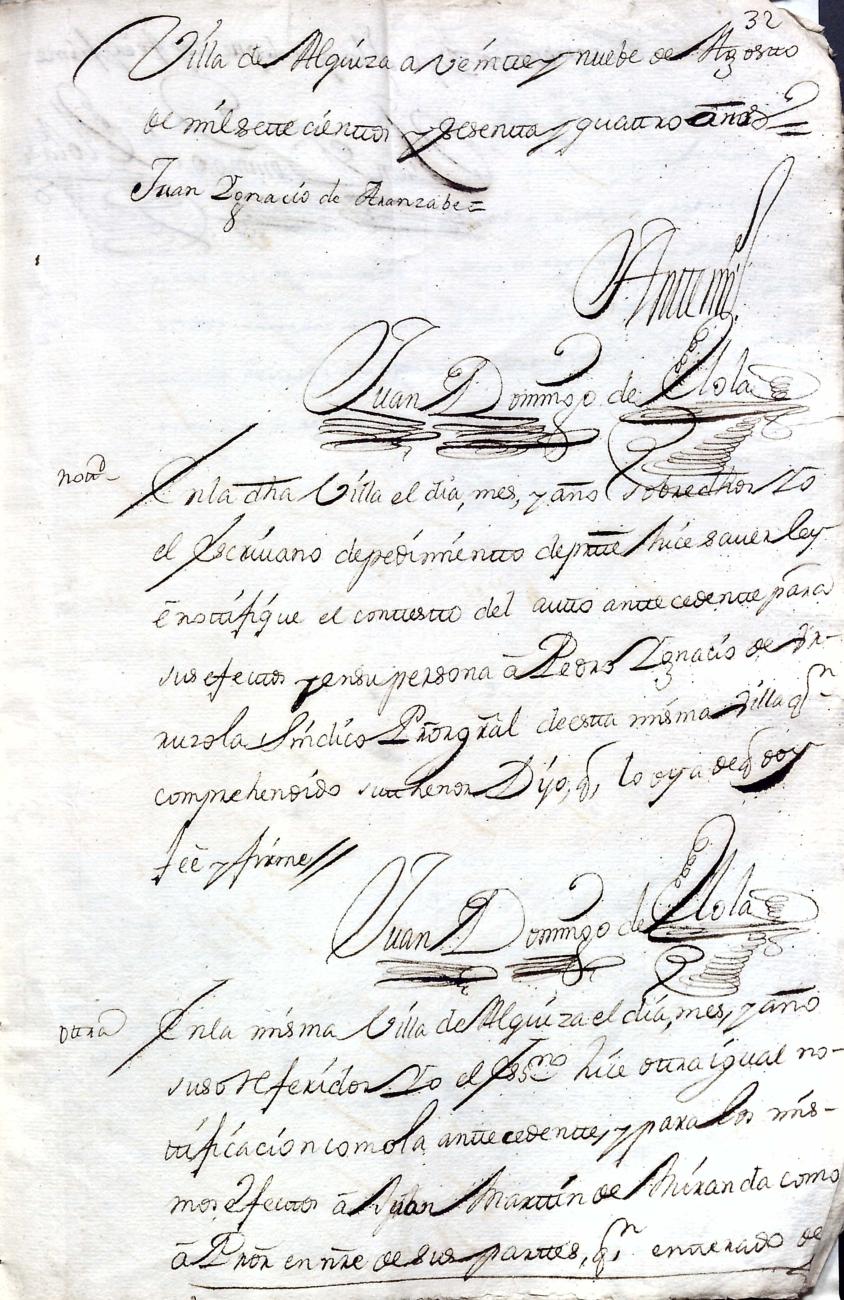 32
Villa de Alquiza a veintte y nuebe de Agostto
de mil sette cienttos y sesentta y quattro años =
Juan Ygnacio de Aranzabe =
Antte mi
Juan Domingo de Llola
nottn
En la dha Villa el dia, mes, y año sobre dhos Yo
el Escrivano de pedimientto de partte hice saver ley
e nottifique el conttestto del autto anttecedentte para
sus efecttos y en su persona â Pedro Ygnacio de
Sindico Prōr grāl de estta misma Villa qn
comprehendido su thenor Dijo, q, lo oya de q doy
feê y firme //
Juan Domingo de Llola
ottra
En la misma Villa de Alquiza el dia, mes, y año
suso Referidos Yo el Essno hice ottra igual no-
ttificacion como la anttecedentte, y para los mis-
mos efecttos â Julian Marttin de Miranda como
â Prōr en nrē de sus parttes, qn entterado de